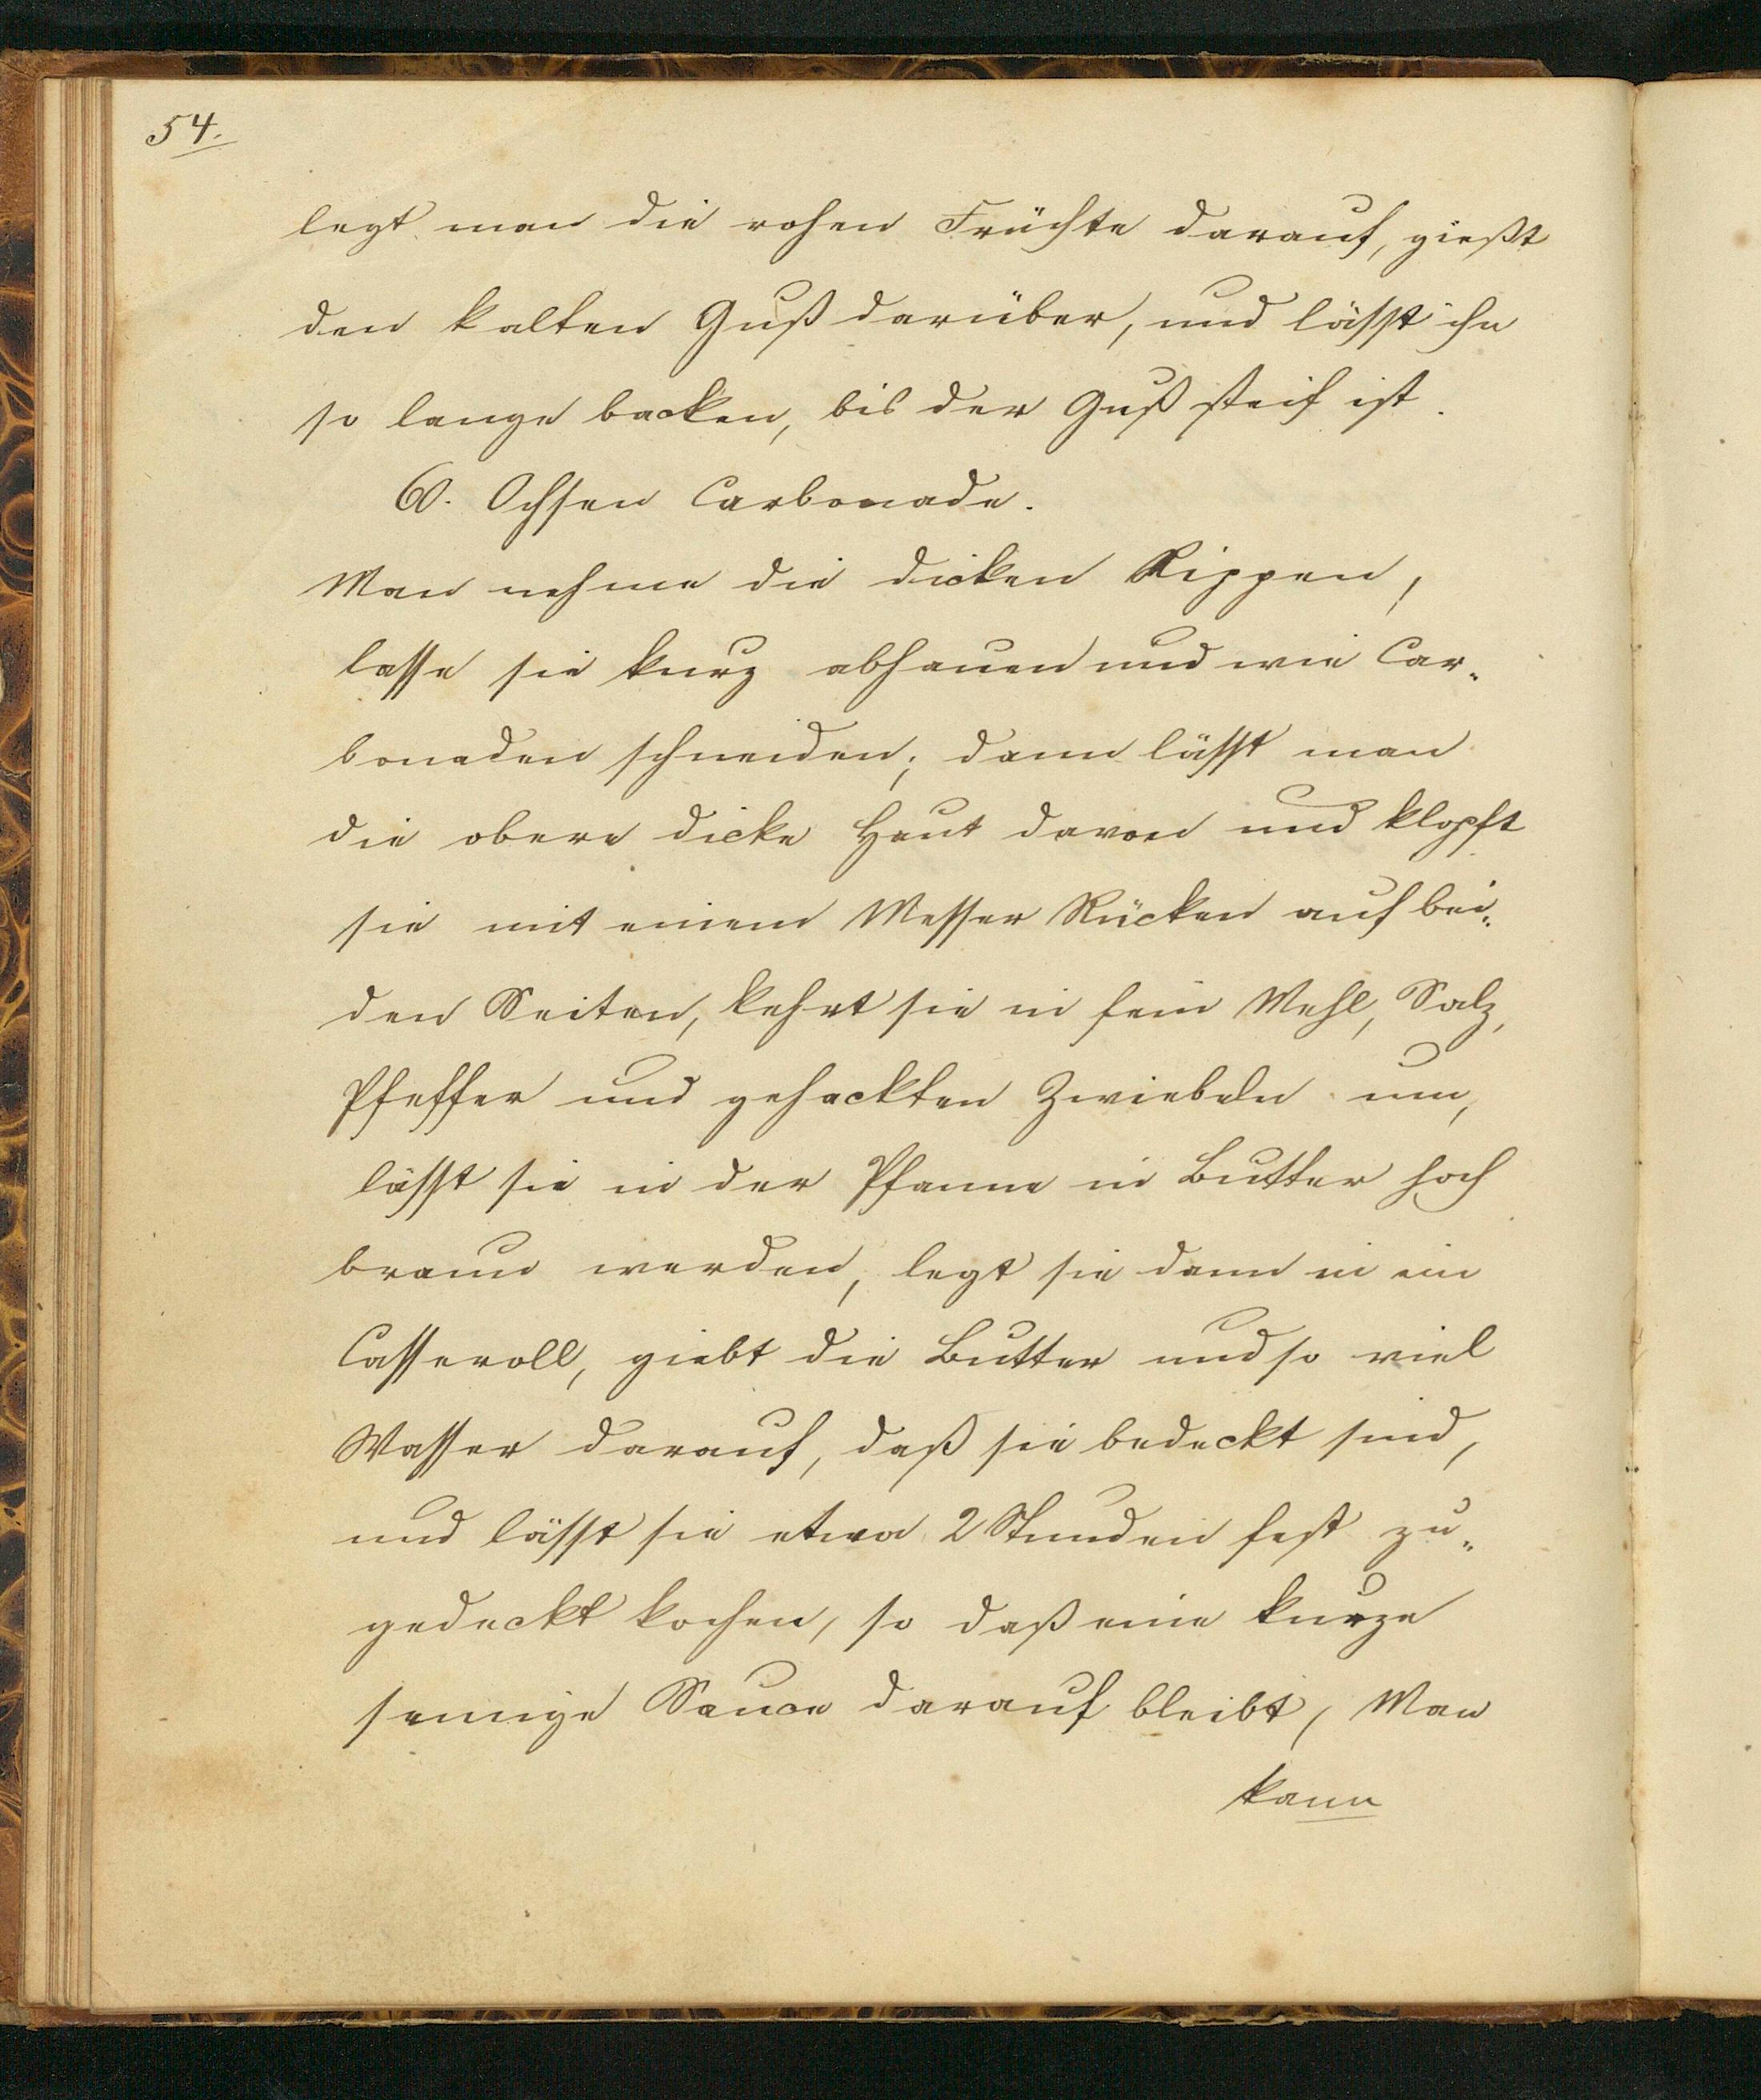 54.
legt man die rohen Früchte darauf, gießt
den kalten Guß darüber, und lässt ihn
so lange backen, bis der Guß steif ist.
60. Ochsen Carbonade.
Man nehme die dicken Rippen,
lasse sie kurz abhauen und wie Car„
bonaden schneiden; dann lässt man
die obere dicke Haut davon und klopft
sie mit einem Messer Rücken auf bei„
den Seiten, kehrt sie in fein Mehl, Salz,
Pfeffer und gehackten Zwiebeln um,
lässt sie in der Pfanne in Butter hoch
braun werden, legt sie dann in ein
Casseroll, giebt die Butter und so viel
Wasser darauf, daß sie bedeckt sind,
und lässt sie etwa 2 Stunden fest zu„
gedeckt kochen, so daß eine kurze
semige Sauce darauf bleibt, Man
kann